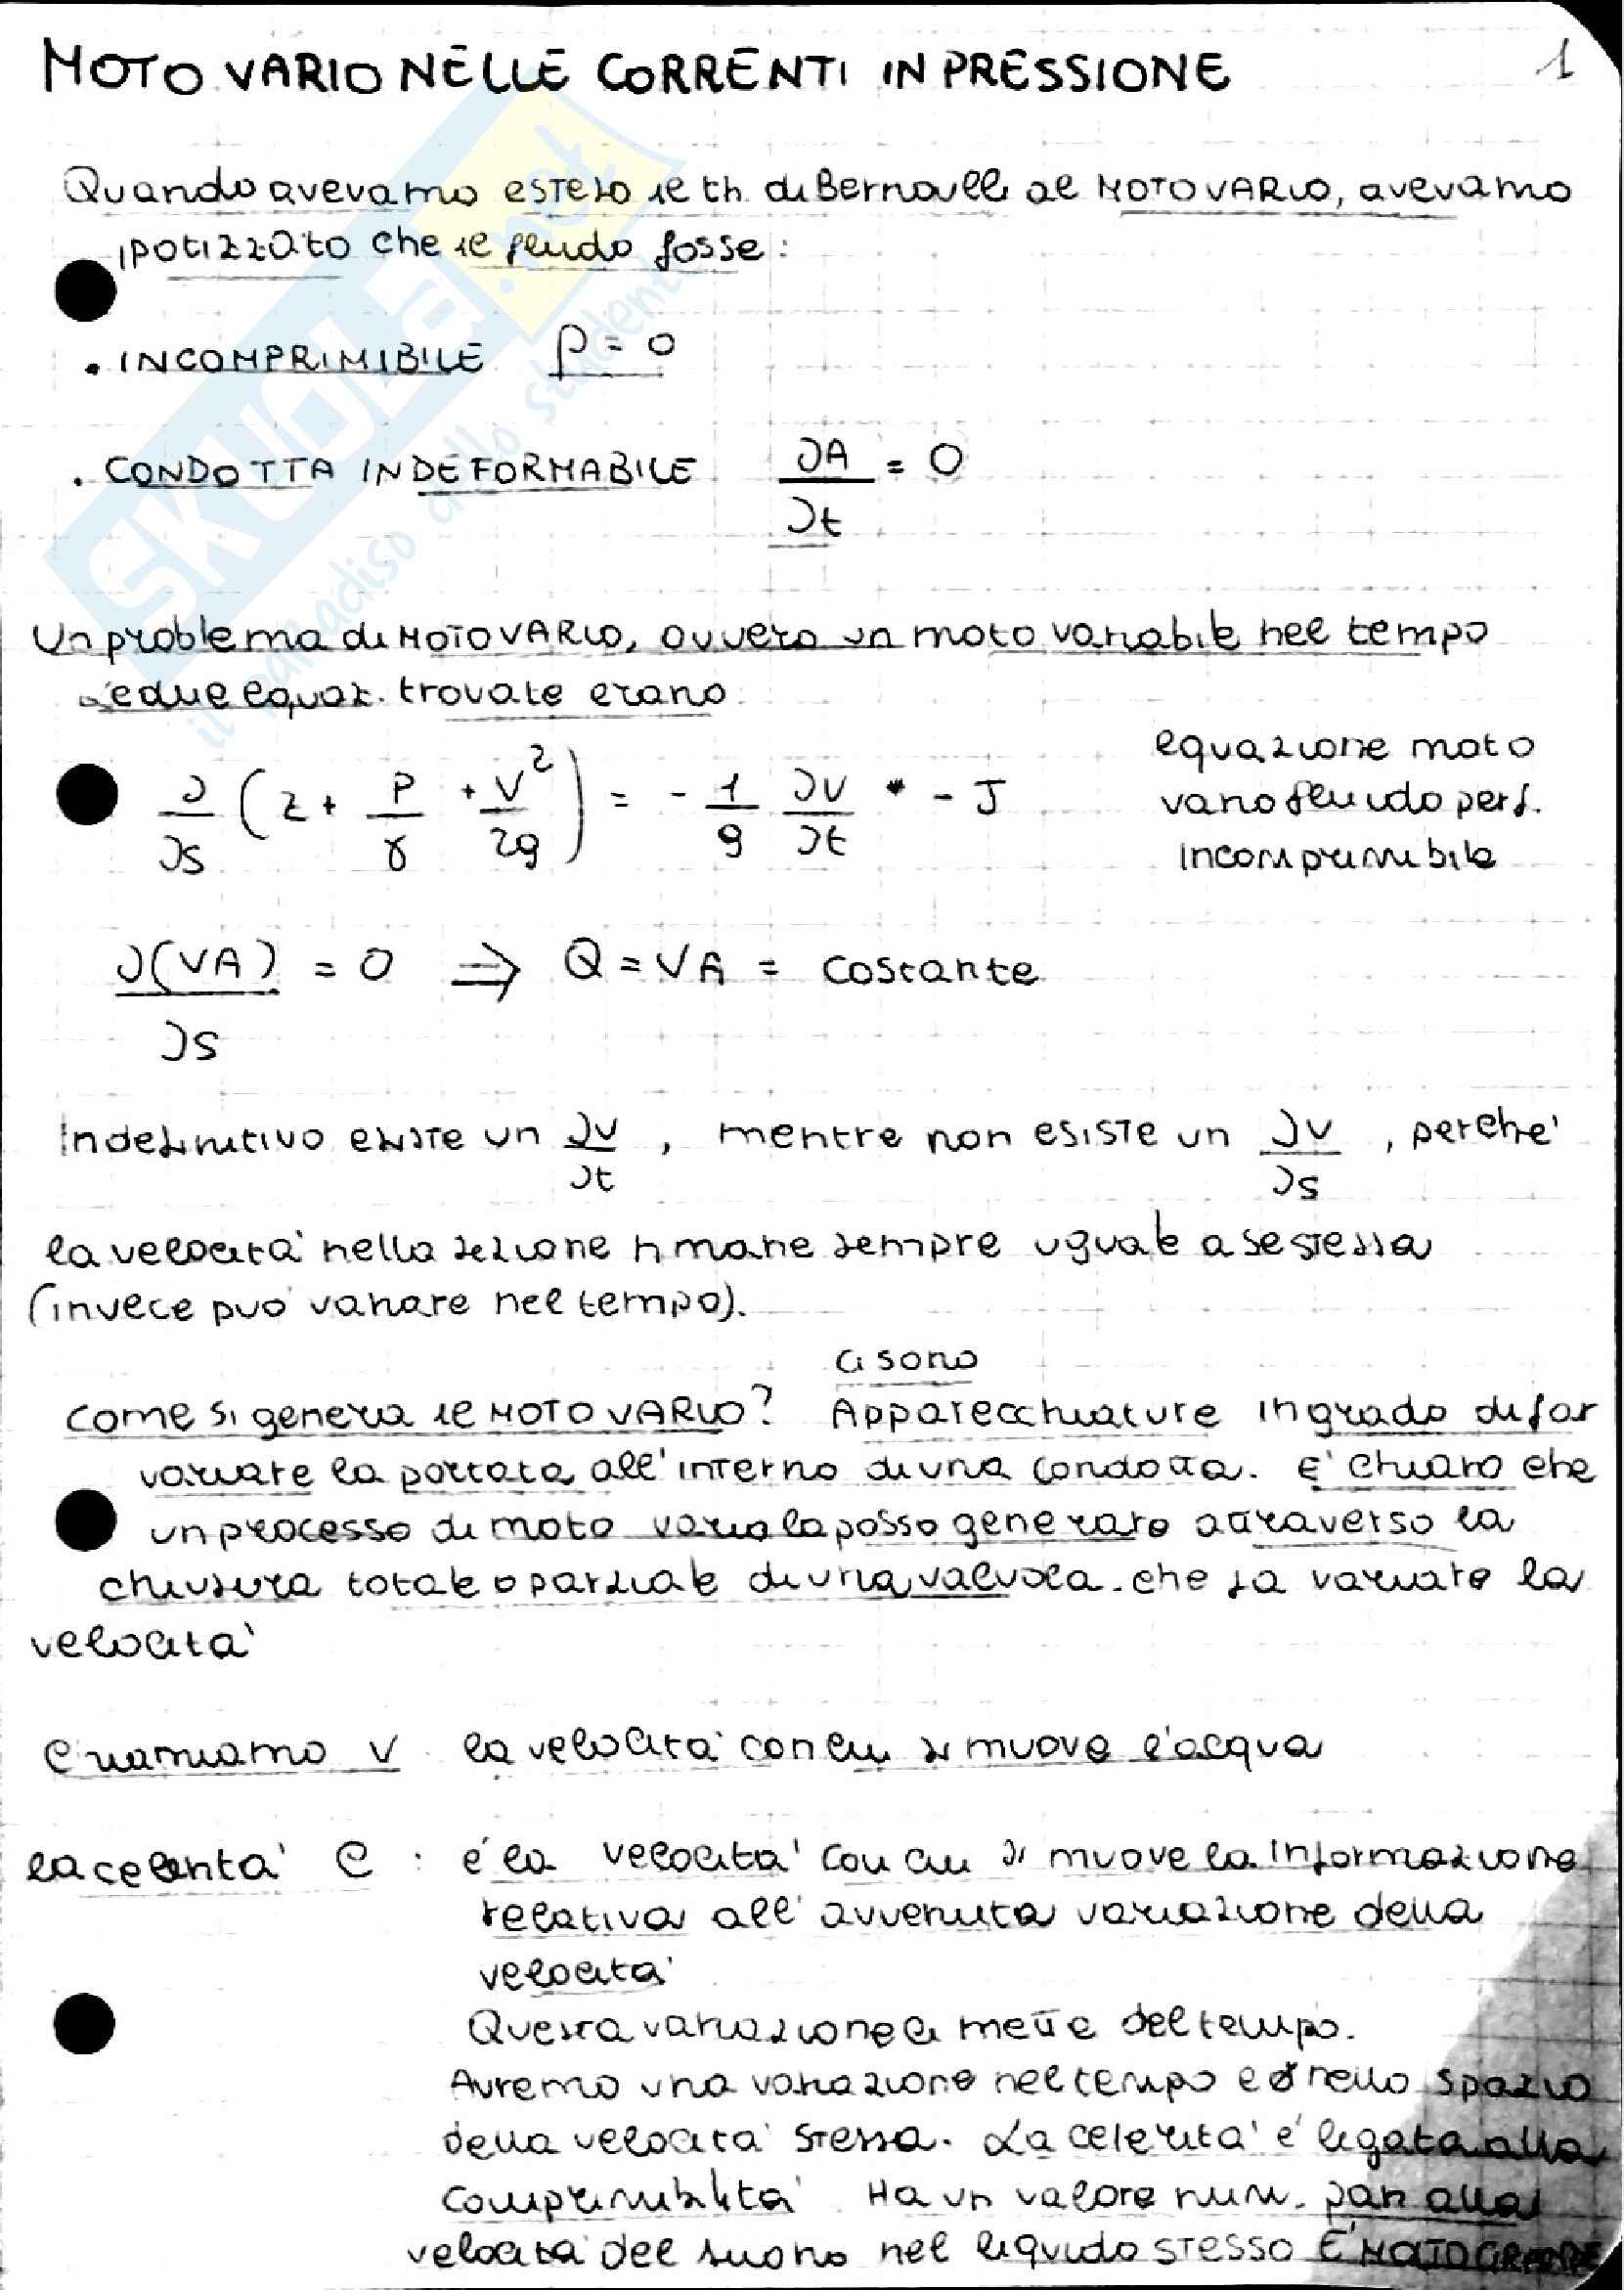 MOTO VARIO NELLE CORRENTI IN PRESSIONE 1
Quando avevamo esteso il th. di Bernoulli al MOTO VARIO, avevamo
ipotizzato che il fluido fosse:
• INCOMPRIMIBILE ρ = 0
• CONDOTTA INDEFORMABILE ∂A/∂t = 0
Un problema di MOTO VARIO, ovvero un moto variabile nel tempo
le due equaz. trovate erano
∂/∂s (z + p/γ + v²/2g) = - 1/g ∂v/∂t - J
equazione moto
vario fluido perf.
incomprimibile
∂(VA)/∂s = 0 ⇒ Q = VA = costante
In definitivo esiste un ∂v/∂t, mentre non esiste un ∂v/∂s, perche'
la velocita' nella sezione rimane sempre uguale a se stessa
(invece puo' variare nel tempo).
ci sono
Come si genera il MOTO VARIO? Apparecchiature in grado di far
variare la portata all'interno di una condotta. E' chiaro che
un processo di moto vario lo posso generare attraverso la
chiusura totale o parziale di una valvola. che fa variare la
velocita'
Chiamiamo V la velocita' con cui si muove l'acqua
la celerita' C : é la velocita' con cui si muove la informazione
relativa all' avvenuta variazione della
velocita'
Questa variazione ci mette del tempo.
Avremo una variazione nel tempo e nello spazio
della velocita' stessa. La celerita' e' legata alla
comprimibilita' Ha un valore num. pari alla
velocita' del suono nel liquido stesso E' MOLTO GRANDE
SKUOLA.net
il paradiso dello studente